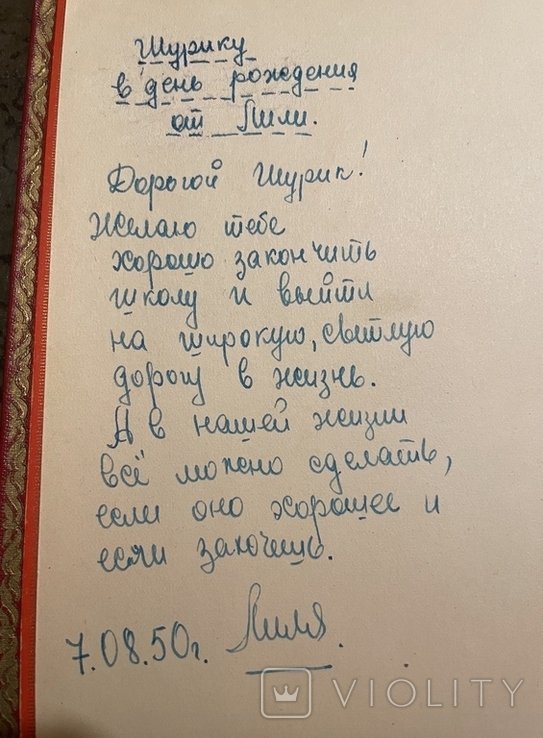 Шурику
в день рождения
от Лили.
Дорогой Шурик!
Желаю тебе
хорошо закончить
школу и выйти
на широкую, светлую
дорогу в жизнь.
А в нашей жизни
всё можно сделать,
если оно хорошее и
если захочешь.
7.08.50г. Лиля.
VIOLITY